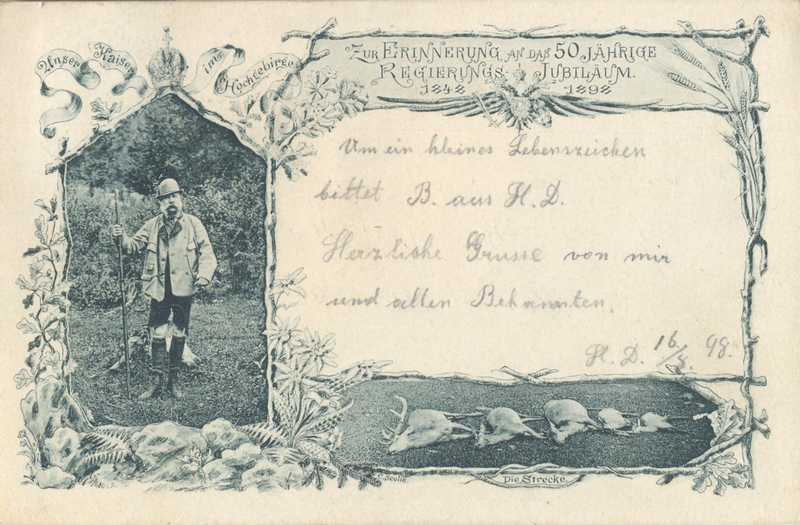 Unser Kaiser im Hochgebirge
Zur Erinnerung an das 50 jährige
Regierungs-Jubiläum.
1848 1898
Um ein kleines Lebenszeichen
bittet B. aus H. D.
Herzliche Grusse von mir
und allen Bekannten.
H. D. 16/ 98.
Die Strecke.